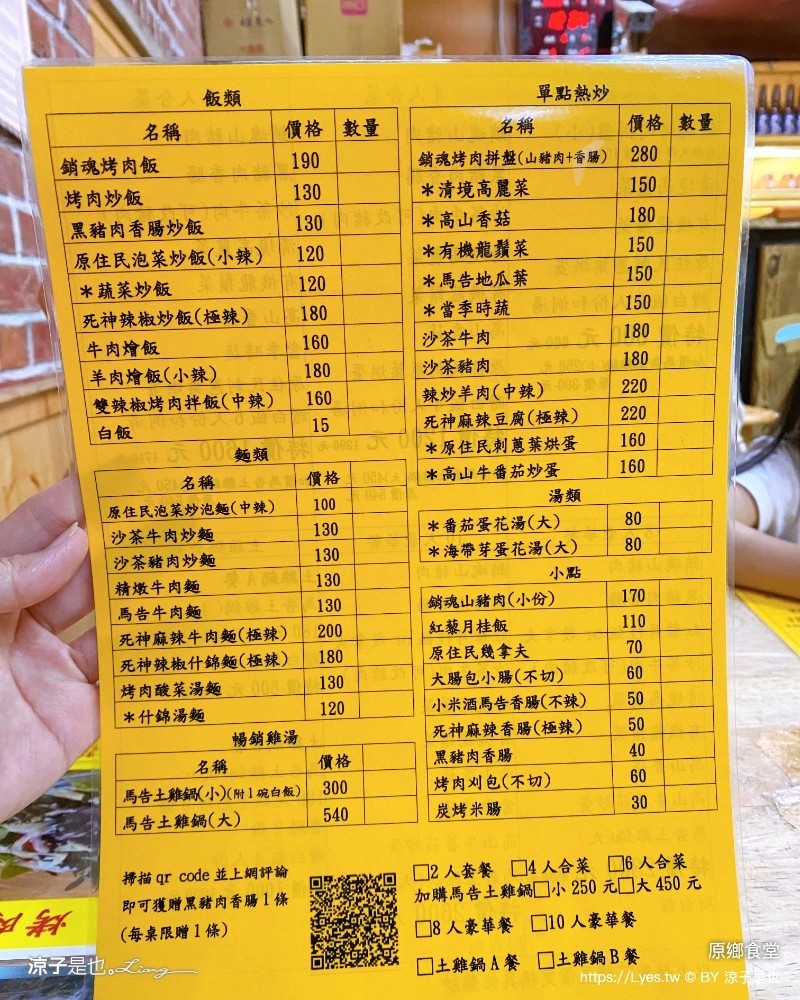 飯類
名稱 價格 數量
銷魂烤肉飯 190
烤肉炒飯 130
黑豬肉香腸炒飯 130
原住民泡菜炒飯(小辣) 120
＊蔬菜炒飯 120
死神辣椒炒飯(極辣) 180
牛肉燴飯 160
羊肉燴飯(小辣) 180
雙辣椒烤肉拌飯(中辣) 160
白飯 15
麵類
名稱 價格
原住民泡菜炒泡麵(中辣) 100
沙茶牛肉炒麵 130
沙茶豬肉炒麵 130
精燉牛肉麵 130
馬告牛肉麵 130
死神麻辣牛肉麵(極辣) 200
死神辣椒什錦麵(極辣) 180
烤肉酸菜湯麵 130
＊什錦湯麵 120
暢銷雞湯
名稱 價格
馬告土雞鍋(小)(附1碗白飯) 300
馬告土雞鍋(大) 540
掃描 qr code 並上網評論
即可獲贈黑豬肉香腸 1 條
(每桌限贈 1 條)
單點熱炒
名稱 價格 數量
銷魂烤肉拼盤(山豬肉+香腸) 280
＊清境高麗菜 150
＊高山香菇 180
＊有機龍鬚菜 150
＊馬告地瓜葉 150
＊當季時蔬 150
沙茶牛肉 180
沙茶豬肉 180
辣炒羊肉(中辣) 220
死神麻辣豆腐(極辣) 220
＊原住民刺蔥葉烘蛋 160
＊高山牛番茄炒蛋 160
湯類
＊番茄蛋花湯(大) 80
＊海帶芽蛋花湯(大) 80
小點
銷魂山豬肉(小份) 170
紅藜月桂飯 110
原住民幾拿夫 70
大腸包小腸(不切) 60
小米酒馬告香腸(不辣) 50
死神麻辣香腸(極辣) 50
黑豬肉香腸 40
烤肉刈包(不切) 60
炭烤米腸 30
□2 人套餐 □4 人合菜 □6 人合菜
加購馬告土雞鍋□小 250 元□大 450 元
□8 人豪華餐 □10 人豪華餐
□土雞鍋 A 餐 □土雞鍋 B 餐
烤肉
涼子是也。Liang
原鄉食堂
https://Lyes.tw © BY 涼子是也